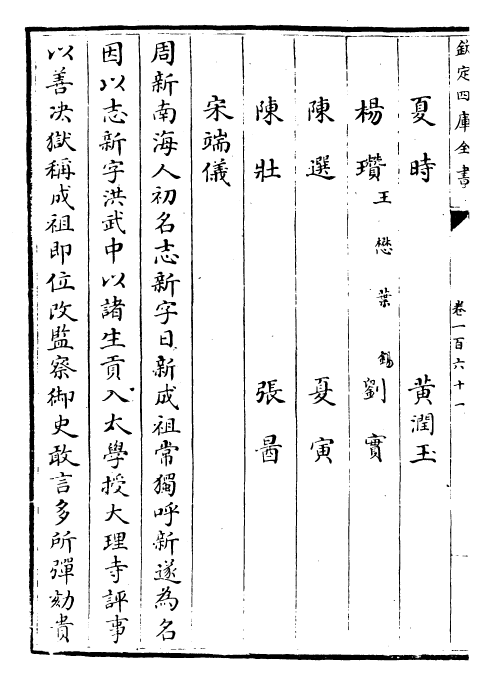 欽定四庫全書
卷一百六十一
夏時 黃潤玉
楊瓚 王懋 葉錫 劉實
陳選 夏寅
陳壯 張昺
宋端儀
周新南海人初名志新字日新成祖常獨呼新遂為名
因以志新字洪武中以諸生貢入太學授大理寺評事
以善决獄稱成祖即位改監察御史敢言多所彈劾貴